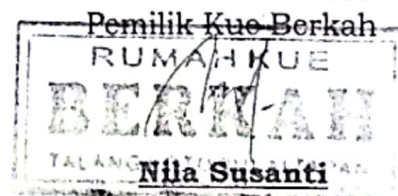 Pemilik Kue Berkah
RUMAH KUE
BERKAH
TALANG
Nila Susanti